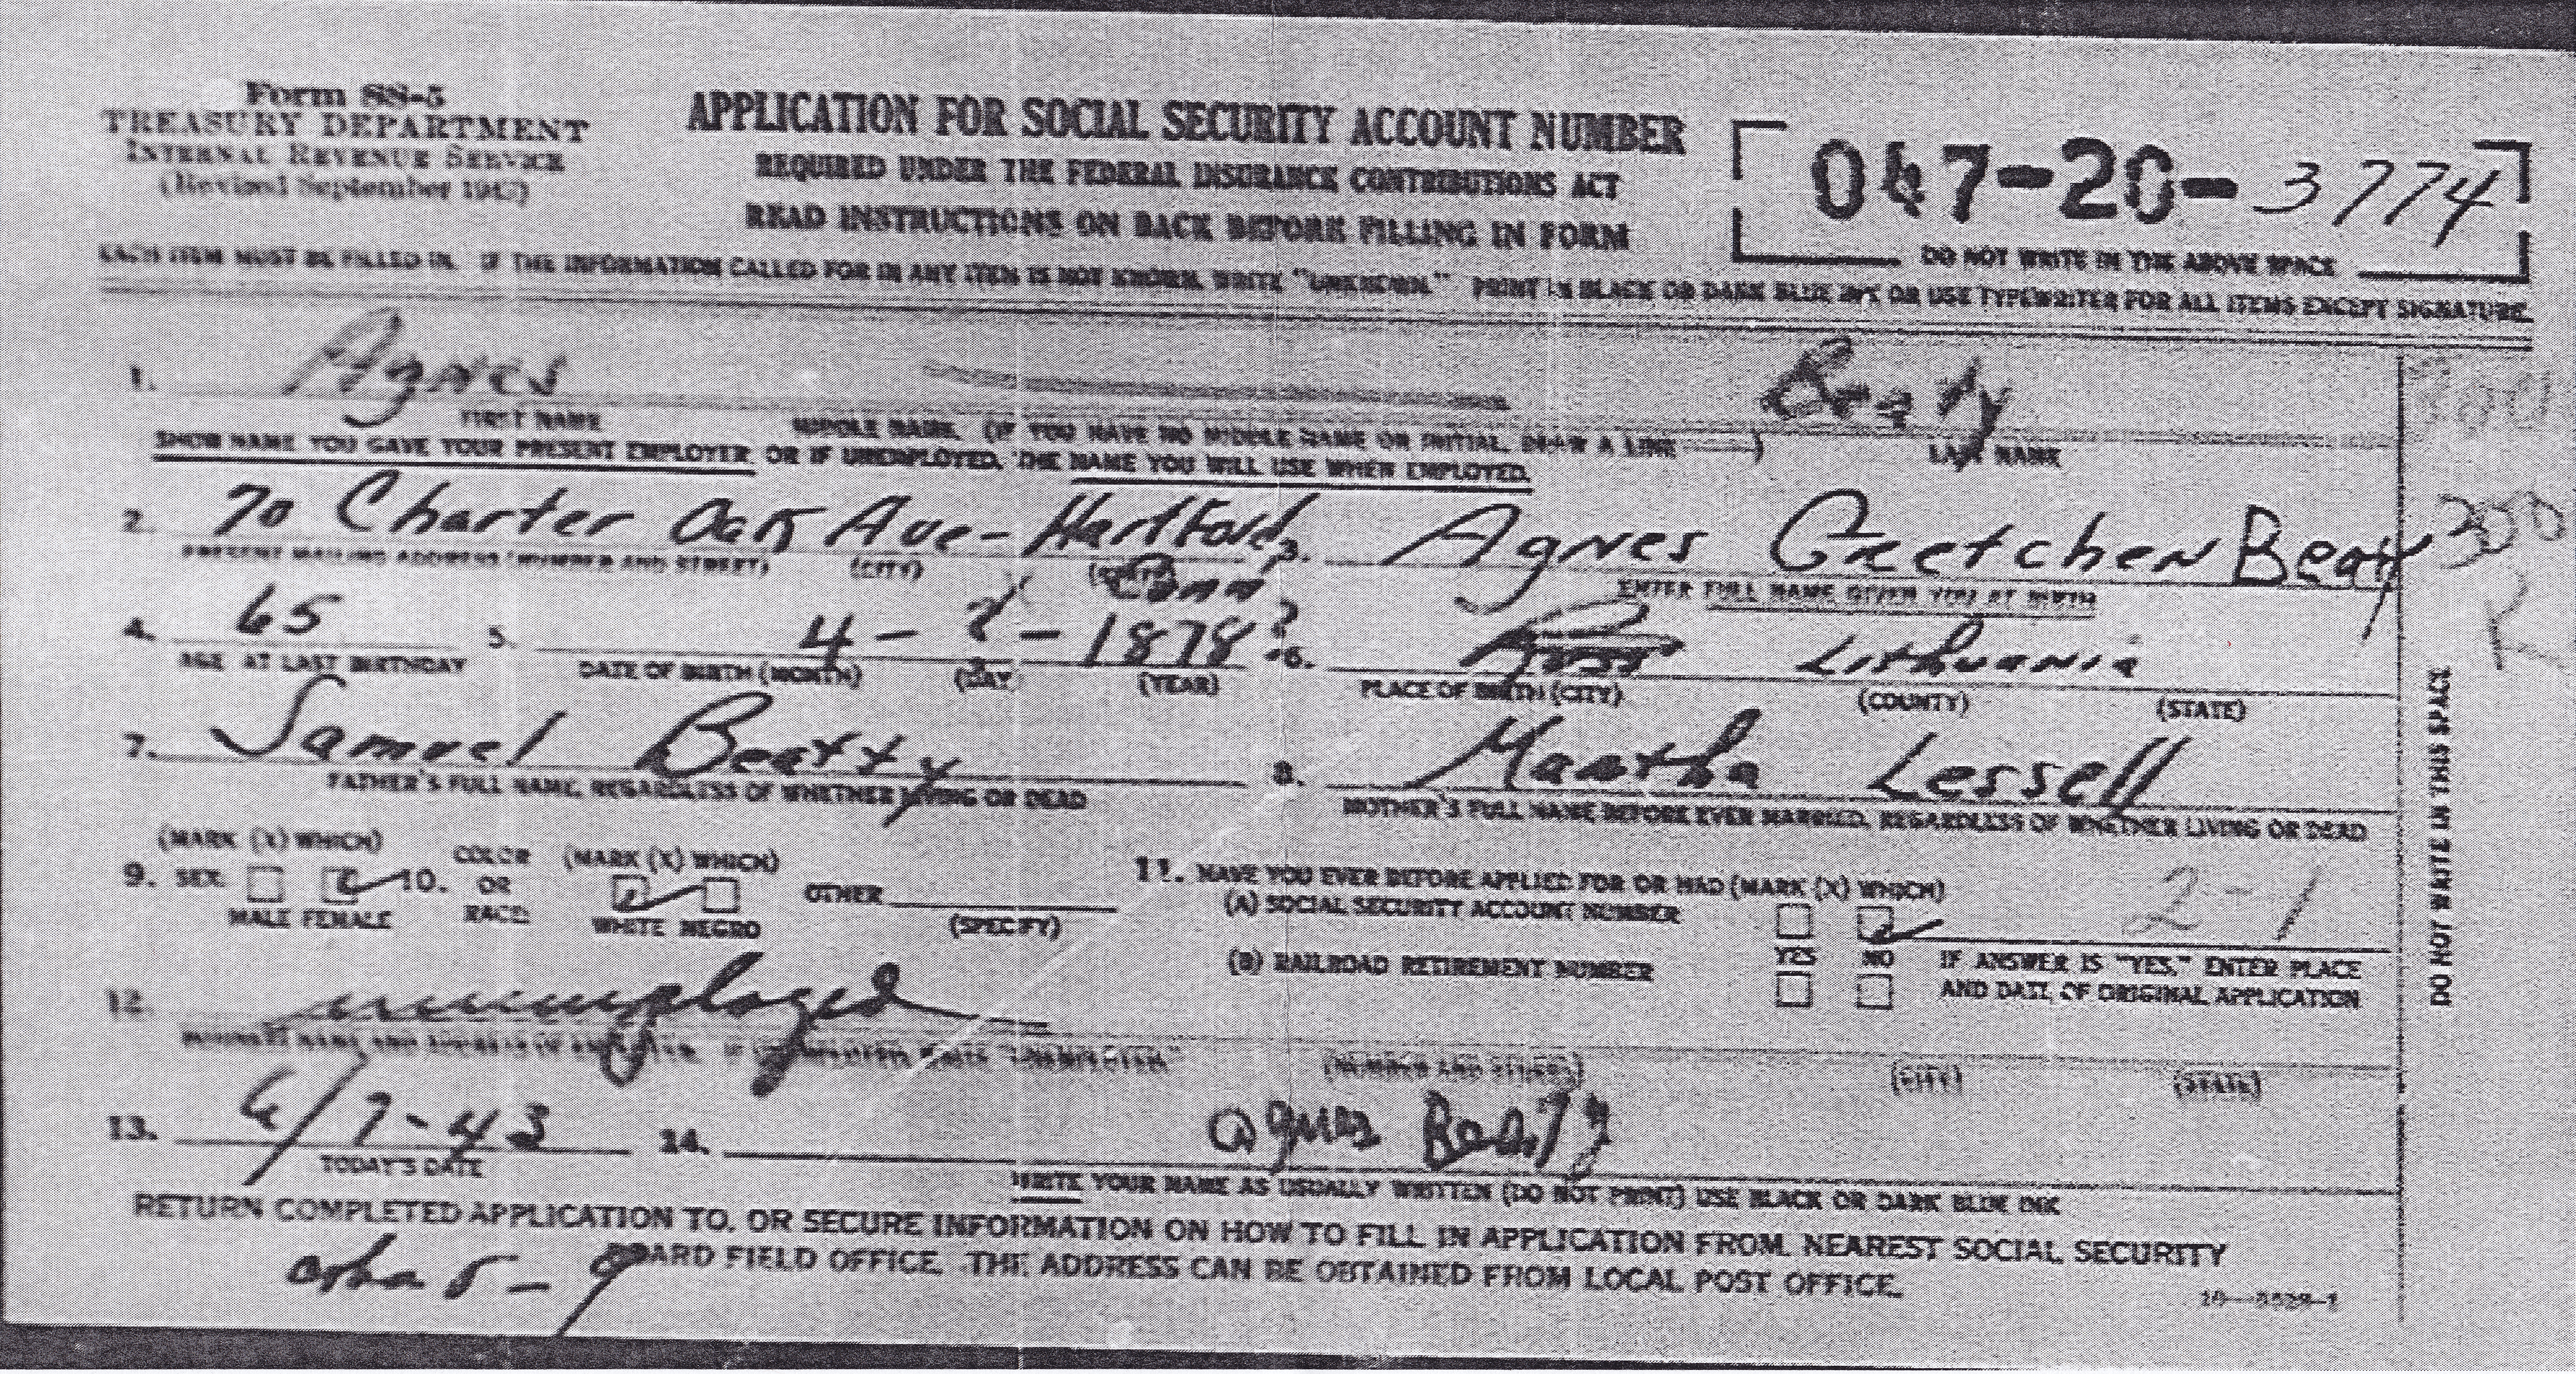 Form SS-5
TREASURY DEPARTMENT
INTERNAL REVENUE SERVICE
(Revised September 1942)
APPLICATION FOR SOCIAL SECURITY ACCOUNT NUMBER
REQUIRED UNDER THE FEDERAL INSURANCE CONTRIBUTIONS ACT
READ INSTRUCTIONS ON BACK BEFORE FILLING IN FORM
047-20-3774
DO NOT WRITE IN THE ABOVE SPACE
EACH ITEM MUST BE FILLED IN. IF THE INFORMATION CALLED FOR IN ANY ITEM IS NOT KNOWN, WRITE "UNKNOWN." PRINT IN BLACK OR DARK BLUE INK OR USE TYPEWRITER FOR ALL ITEMS EXCEPT SIGNATURE.
1. Agnes
FIRST NAME MIDDLE NAME. (IF YOU HAVE NO MIDDLE NAME OR INITIAL, DRAW A LINE ——) LAST NAME
SHOW NAME YOU GAVE YOUR PRESENT EMPLOYER OR IF UNEMPLOYED, THE NAME YOU WILL USE WHEN EMPLOYED.
2. 70 Charter Oak Ave- Hartford, Conn 3. Agnes Gretchen Beaty
PRESENT MAILING ADDRESS (NUMBER AND STREET) (CITY) (STATE) ENTER FULL NAME GIVEN YOU AT BIRTH
4. 65 5. 4- - 1878? 6. Lithuania
AGE AT LAST BIRTHDAY DATE OF BIRTH (MONTH) (DAY) (YEAR) PLACE OF BIRTH (CITY) (COUNTY) (STATE)
7. Samuel Beatty 8. Martha Lessell
FATHER'S FULL NAME, REGARDLESS OF WHETHER LIVING OR DEAD MOTHER'S FULL NAME BEFORE EVER MARRIED, REGARDLESS OF WHETHER LIVING OR DEAD
(MARK (X) WHICH) COLOR (MARK (X) WHICH)
9. SEX: 10. OR OTHER
MALE FEMALE RACE: WHITE NEGRO (SPECIFY)
11. HAVE YOU EVER BEFORE APPLIED FOR OR HAD (MARK (X) WHICH)
(A) SOCIAL SECURITY ACCOUNT NUMBER 2-1
(B) RAILROAD RETIREMENT NUMBER YES NO IF ANSWER IS "YES," ENTER PLACE
AND DATE OF ORIGINAL APPLICATION
12. unemployed
BUSINESS NAME AND ADDRESS OF EMPLOYER. IF UNEMPLOYED, WRITE "UNEMPLOYED" (NUMBER AND STREET) (CITY) (STATE)
13. 6/7-43 14. Agnes Beaty
TODAY'S DATE WRITE YOUR NAME AS USUALLY WRITTEN (DO NOT PRINT) USE BLACK OR DARK BLUE INK
RETURN COMPLETED APPLICATION TO, OR SECURE INFORMATION ON HOW TO FILL IN APPLICATION FROM, NEAREST SOCIAL SECURITY
BOARD FIELD OFFICE. THE ADDRESS CAN BE OBTAINED FROM LOCAL POST OFFICE.
DO NOT WRITE IN THIS SPACE
300